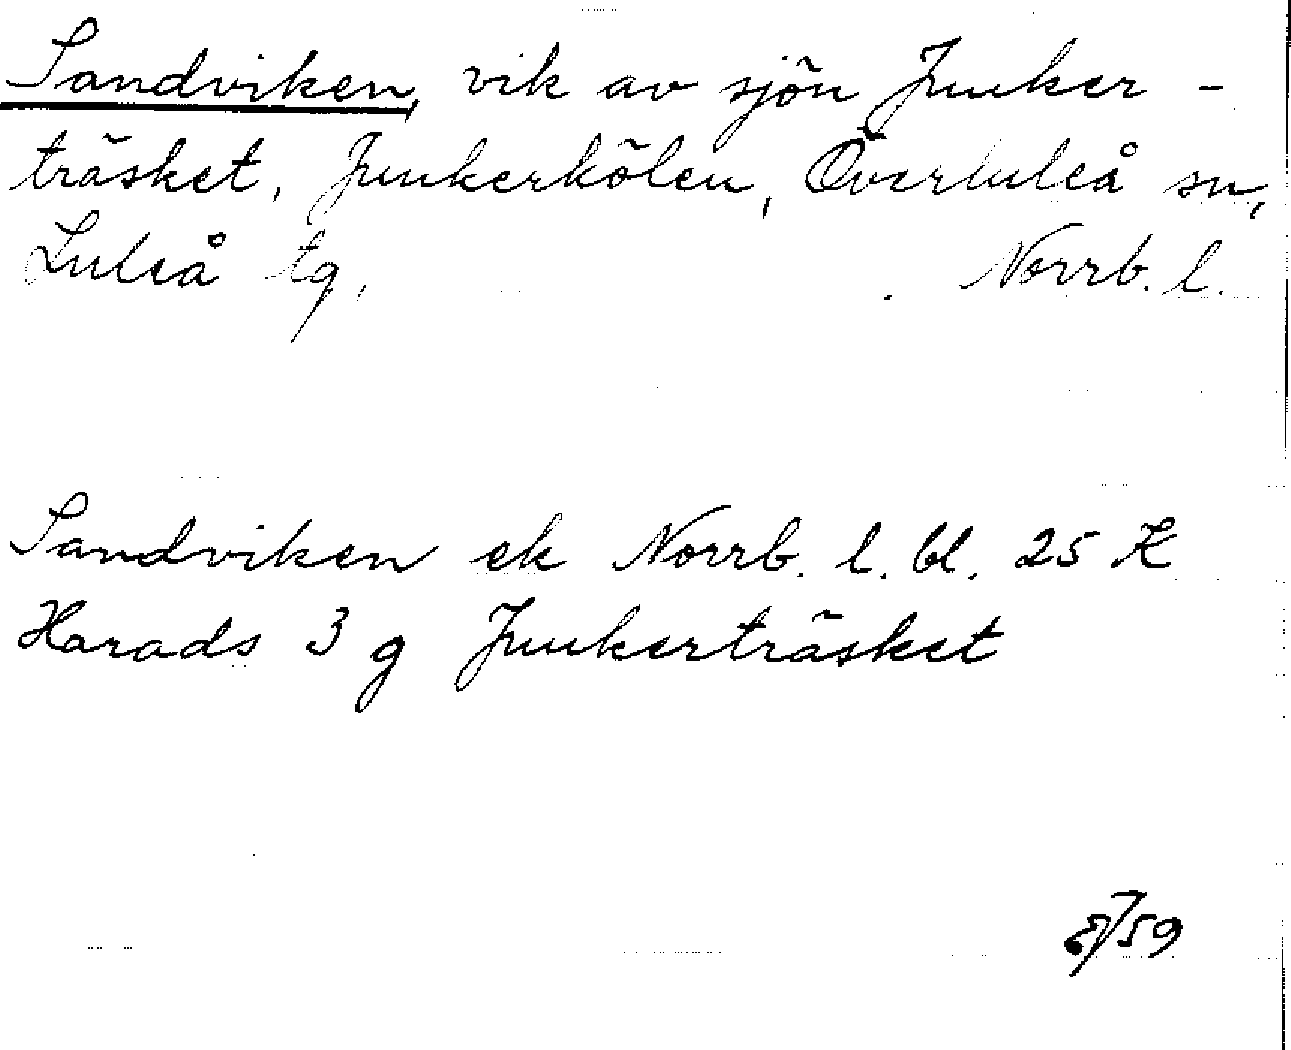 Sandviken, vik av sjön Junker-
träsket, Junkerkölen, Överluleå sn,
Luleå tg, Norrb. l.
Sandviken ek Norrb. l. bl. 25 K
Harads 3 g Junkerträsket
/59